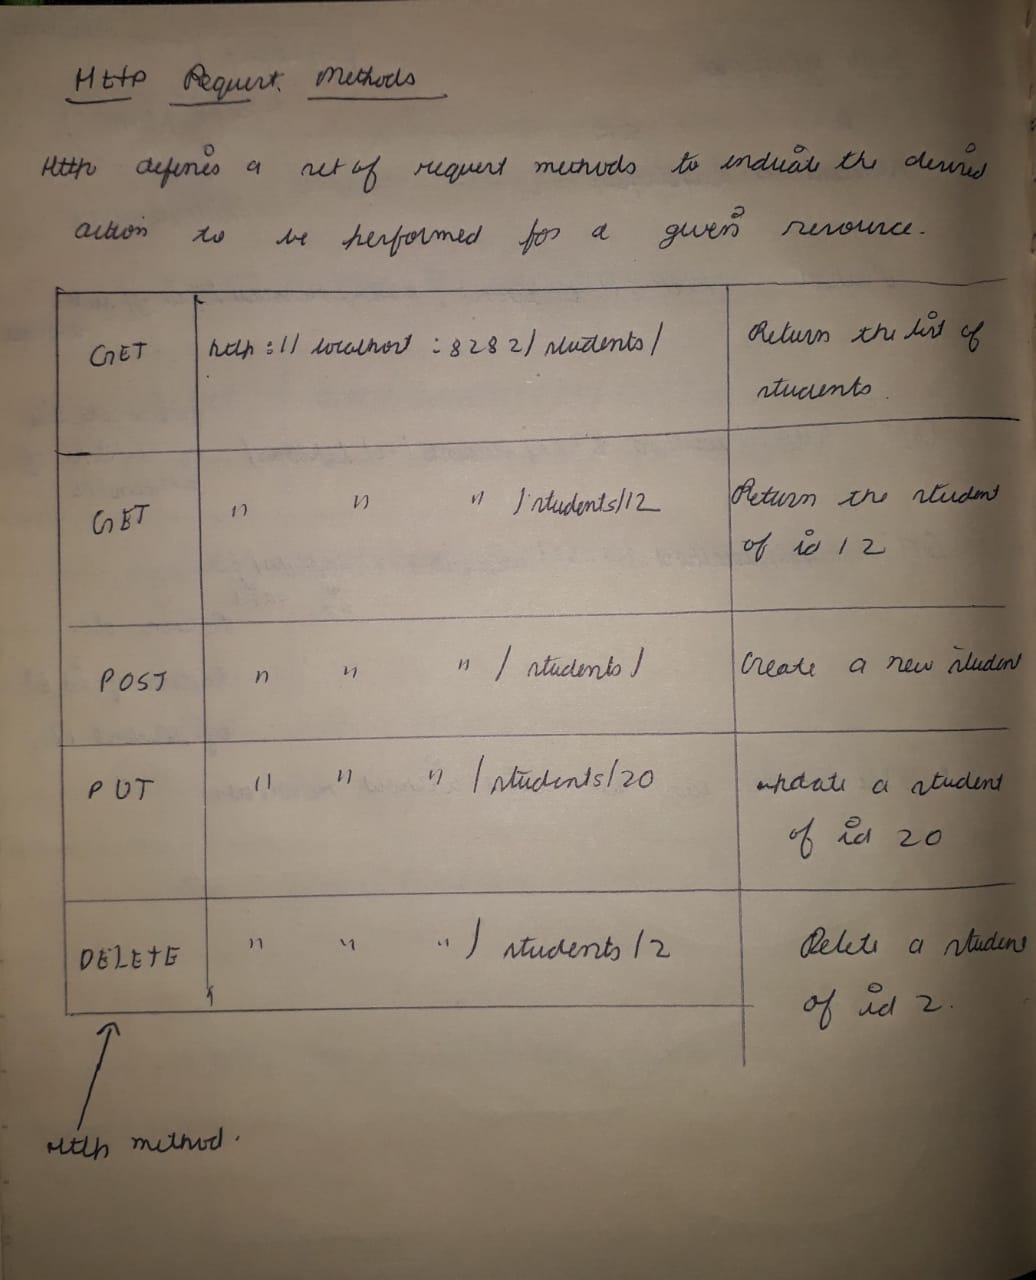 Http Request Methods
Http defines a set of request methods to indicate the desired
action to be performed for a given resource.
GET http://localhost:8282/students/ Return the list of
students.
GET " " " /students/12 Return the student
of id 12
POST " " " /students/ Create a new student
PUT " " " /students/20 update a student
of id 20
DELETE " " " /students/2 Delete a student
of id 2.
Http method.